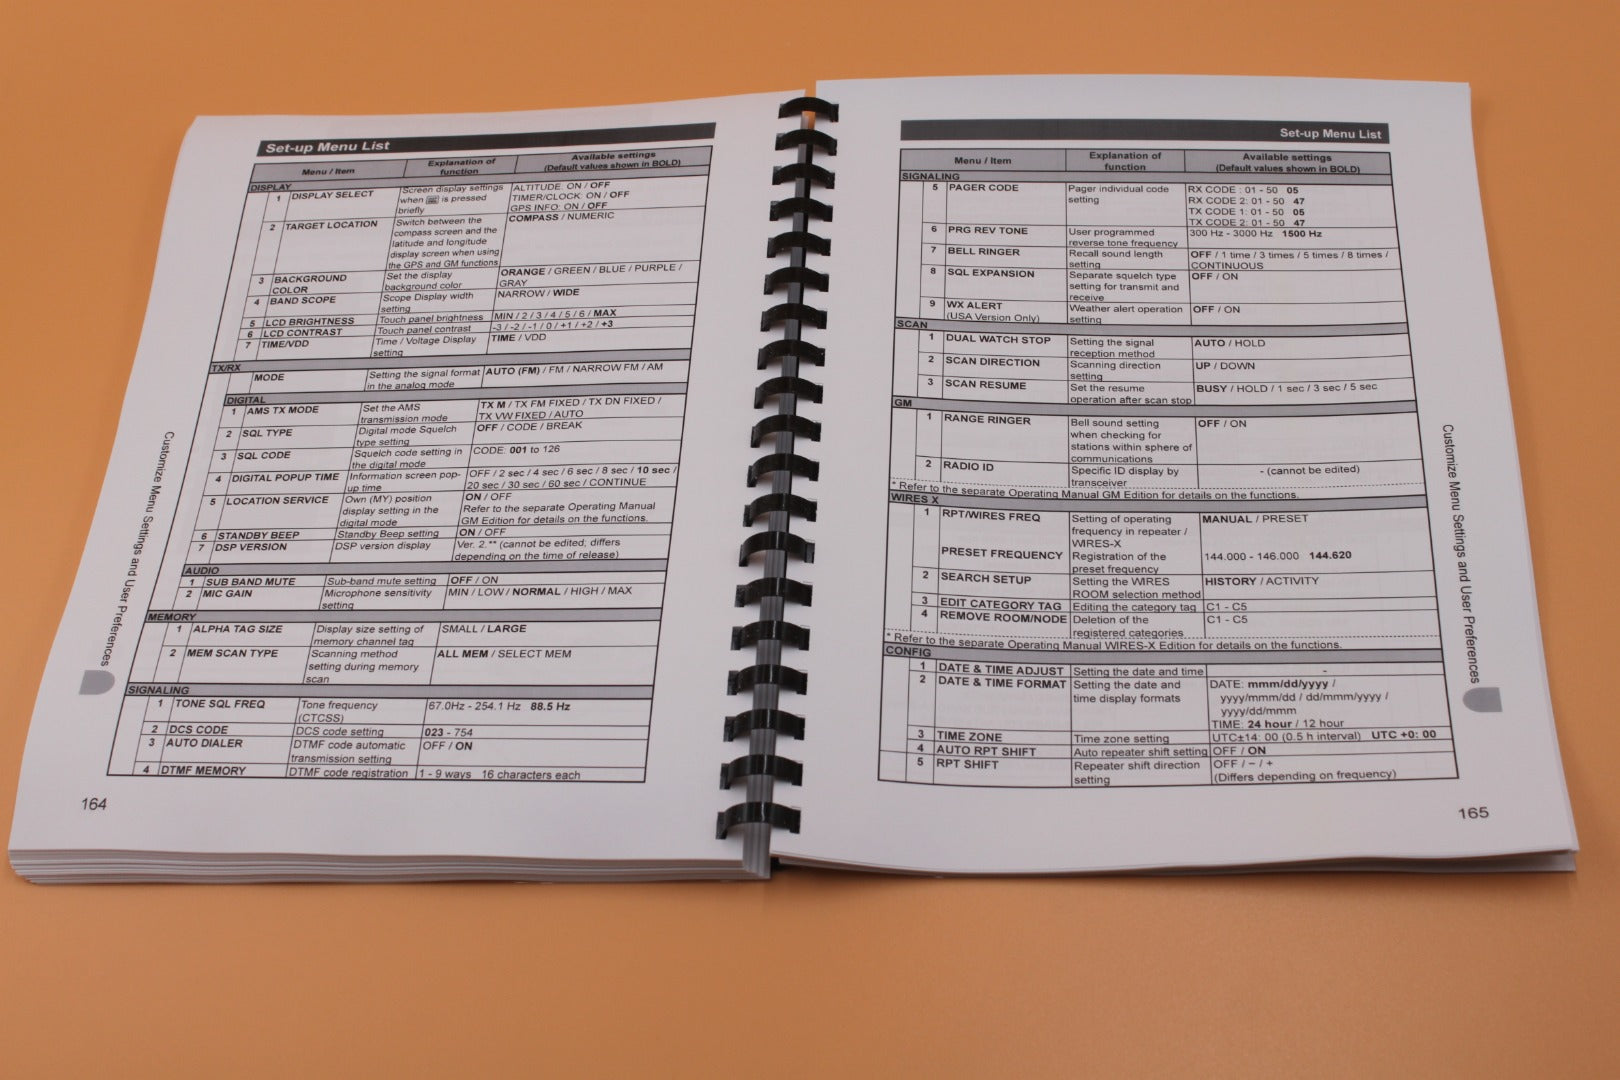 Set-up Menu List
Menu / Item
Explanation of
function
Available settings
(Default values shown in BOLD)
DISPLAY
1 DISPLAY SELECT
Screen display settings
when is pressed
briefly
ALTITUDE: ON / OFF
TIMER/CLOCK: ON / OFF
GPS INFO: ON / OFF
2 TARGET LOCATION
Switch between the
compass screen and the
latitude and longitude
display screen when using
the GPS and GM functions
COMPASS / NUMERIC
3 BACKGROUND
COLOR
Set the display
background color
ORANGE / GREEN / BLUE / PURPLE /
GRAY
4 BAND SCOPE
Scope Display width
setting
NARROW / WIDE
5 LCD BRIGHTNESS
Touch panel brightness
MIN / 2 / 3 / 4 / 5 / 6 / MAX
6 LCD CONTRAST
Touch panel contrast
-3 / -2 / -1 / 0 / +1 / +2 / +3
7 TIME/VDD
Time / Voltage Display
setting
TIME / VDD
TX/RX
MODE
Setting the signal format
in the analog mode
AUTO (FM) / FM / NARROW FM / AM
DIGITAL
1 AMS TX MODE
Set the AMS
transmission mode
TX M / TX FM FIXED / TX DN FIXED /
TX VW FIXED / AUTO
2 SQL TYPE
Digital mode Squelch
type setting
OFF / CODE / BREAK
3 SQL CODE
Squelch code setting in
the digital mode
CODE: 001 to 126
4 DIGITAL POPUP TIME
Information screen pop-
up time
OFF / 2 sec / 4 sec / 6 sec / 8 sec / 10 sec /
20 sec / 30 sec / 60 sec / CONTINUE
5 LOCATION SERVICE
Own (MY) position
display setting in the
digital mode
ON / OFF
Refer to the separate Operating Manual
GM Edition for details on the functions.
6 STANDBY BEEP
Standby Beep setting
ON / OFF
7 DSP VERSION
DSP version display
Ver. 2.** (cannot be edited; differs
depending on the time of release)
AUDIO
1 SUB BAND MUTE
Sub-band mute setting
OFF / ON
2 MIC GAIN
Microphone sensitivity
setting
MIN / LOW / NORMAL / HIGH / MAX
MEMORY
1 ALPHA TAG SIZE
Display size setting of
memory channel tag
SMALL / LARGE
2 MEM SCAN TYPE
Scanning method
setting during memory
scan
ALL MEM / SELECT MEM
SIGNALING
1 TONE SQL FREQ
Tone frequency
(CTCSS)
67.0Hz - 254.1 Hz 88.5 Hz
2 DCS CODE
DCS code setting
023 - 754
3 AUTO DIALER
DTMF code automatic
transmission setting
OFF / ON
4 DTMF MEMORY
DTMF code registration
1 - 9 ways 16 characters each
Customize Menu Settings and User Preferences
164
Set-up Menu List
Menu / Item
Explanation of
function
Available settings
(Default values shown in BOLD)
SIGNALING
5 PAGER CODE
Pager individual code
setting
RX CODE : 01 - 50 05
RX CODE 2: 01 - 50 47
TX CODE 1: 01 - 50 05
TX CODE 2: 01 - 50 47
6 PRG REV TONE
User programmed
reverse tone frequency
300 Hz - 3000 Hz 1500 Hz
7 BELL RINGER
Recall sound length
setting
OFF / 1 time / 3 times / 5 times / 8 times /
CONTINUOUS
8 SQL EXPANSION
Separate squelch type
setting for transmit and
receive
OFF / ON
9 WX ALERT
(USA Version Only)
Weather alert operation
setting
OFF / ON
SCAN
1 DUAL WATCH STOP
Setting the signal
reception method
AUTO / HOLD
2 SCAN DIRECTION
Scanning direction
setting
UP / DOWN
3 SCAN RESUME
Set the resume
operation after scan stop
BUSY / HOLD / 1 sec / 3 sec / 5 sec
GM
1 RANGE RINGER
Bell sound setting
when checking for
stations within sphere of
communications
OFF / ON
2 RADIO ID
Specific ID display by
transceiver
- (cannot be edited)
* Refer to the separate Operating Manual GM Edition for details on the functions.
WIRES X
1 RPT/WIRES FREQ
Setting of operating
frequency in repeater /
WIRES-X
MANUAL / PRESET
PRESET FREQUENCY
Registration of the
preset frequency
144.000 - 146.000 144.620
2 SEARCH SETUP
Setting the WIRES
ROOM selection method
HISTORY / ACTIVITY
3 EDIT CATEGORY TAG
Editing the category tag
C1 - C5
4 REMOVE ROOM/NODE
Deletion of the
registered categories
C1 - C5
* Refer to the separate Operating Manual WIRES-X Edition for details on the functions.
CONFIG
1 DATE & TIME ADJUST
Setting the date and time
-
2 DATE & TIME FORMAT
Setting the date and
time display formats
DATE: mmm/dd/yyyy /
yyyy/mmm/dd / dd/mmm/yyyy /
yyyy/dd/mmm
TIME: 24 hour / 12 hour
3 TIME ZONE
Time zone setting
UTC±14: 00 (0.5 h interval) UTC +0: 00
4 AUTO RPT SHIFT
Auto repeater shift setting
OFF / ON
5 RPT SHIFT
Repeater shift direction
setting
OFF / − / +
(Differs depending on frequency)
Customize Menu Settings and User Preferences
165